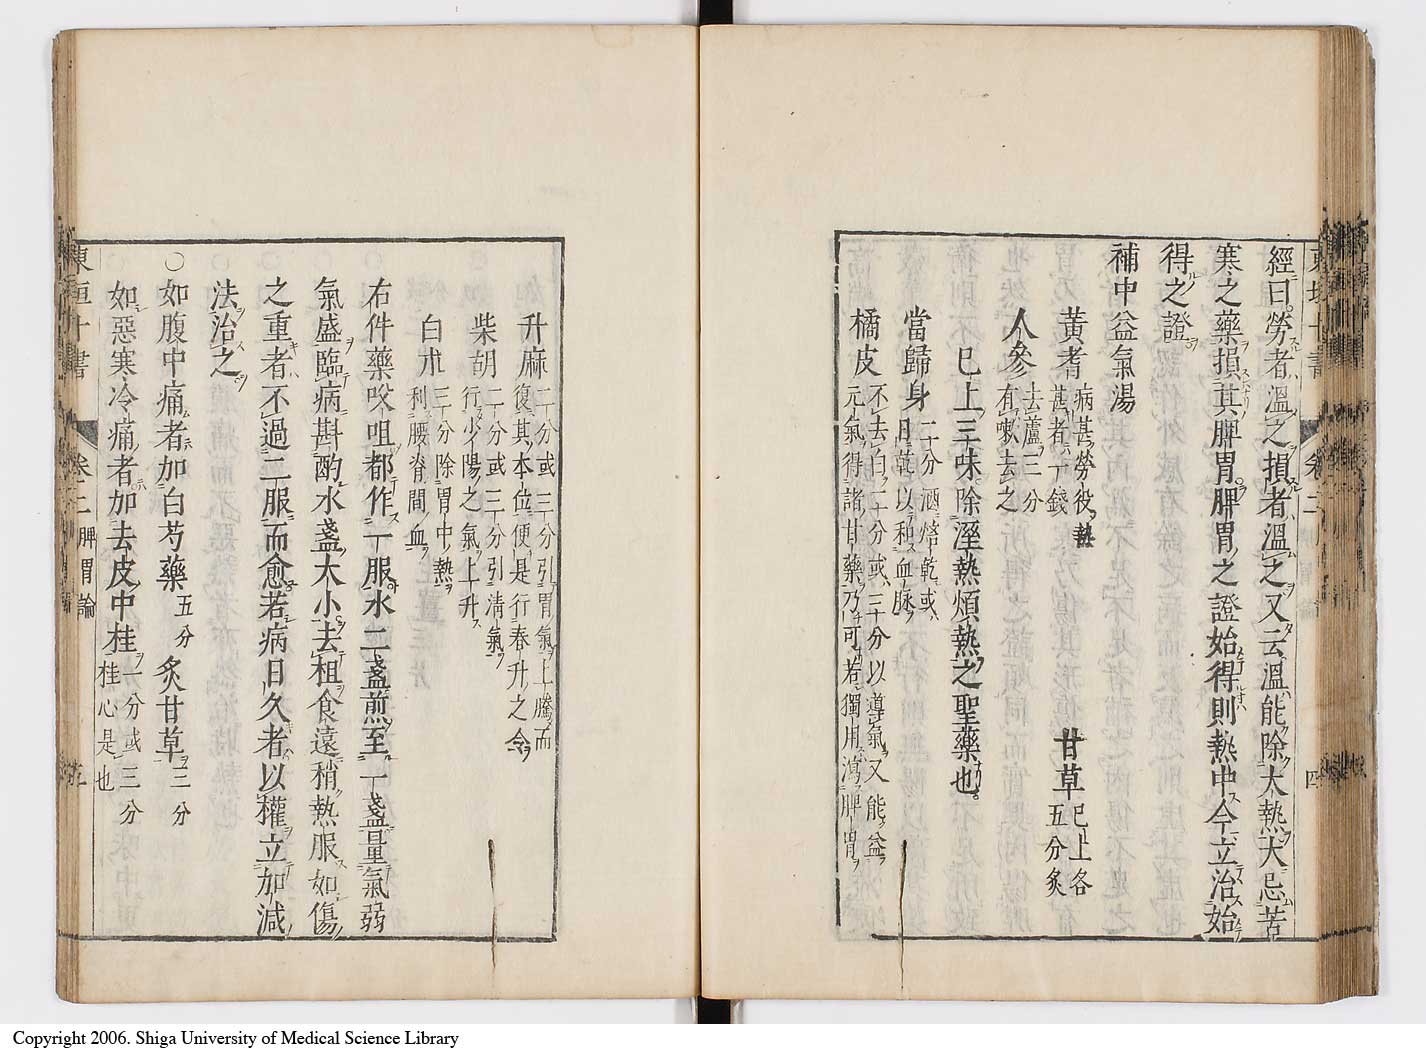 經曰勞者溫之損者溫之又云溫能除大熱大忌苦
寒之藥損其脾胃脾胃之證始得則熱中今立治始
得之證
補中益氣湯
黃耆 病甚勞役熱甚者一錢 甘草 已上各五分炙
人參 去蘆三分有嗽去之
已上三味除溼熱煩熱之聖藥也
當歸身 二十分酒焙乾或日乾以和血脉
橘皮 不去白二十分或三十分以導氣又能益元氣得諸甘藥乃可若獨用瀉脾胃
升麻 二十分或三十分引胃氣上騰而復其本位便是行春升之令
柴胡 二十分或三十分引清氣行少陽之氣上升
白朮 三十分除胃中熱利腰脊間血
右件藥㕮咀都作一服水二盞煎至一盞量氣弱
氣盛臨病斟酌水盞大小去柤食遠稍熱服如傷
之重者不過二服而愈若病日久者以權立加減
法治之
○如腹中痛者加白芍藥五分炙甘草三分
如惡寒冷痛者加去皮中桂一分或三分桂心是也
東垣十書 卷二 脾胃論
Copyright 2006. Shiga University of Medical Science Library